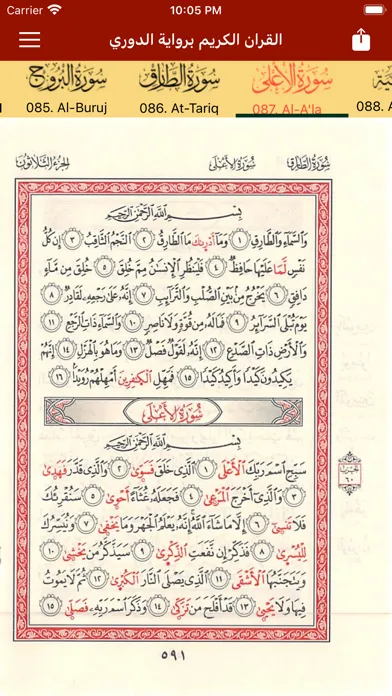 Carrier 10:05 PM
القران الكريم برواية الدوري
سورة البروج سورة الطارق سورة الأعلى
085. Al-Buruj 086. At-Tariq 087. Al-A'la 088. A
الجزء الثلاثون سورة الأعلى سورة الطارق
بسم الله الرحمن الرحيم
والسماء والطارق ١ وما أدريك ما الطارق ٢ النجم الثاقب ٣ إن كل
نفس لما عليها حافظ ٤ فلينظر الإنسن مم خلق ٥ خلق من ماء
دافق ٦ يخرج من بين الصلب والترائب ٧ إنه على رجعه لقادر ٨
يوم تبلى السرائر ٩ فما له من قوة ولا ناصر ١٠ والسماء ذات الرجع ١١
والأرض ذات الصدع ١٢ إنه لقول فصل ١٣ وما هو بالهزل ١٤ إنهم
يكيدون كيدا ١٥ وأكيد كيدا فمهل الكفرين أمهلهم رويدا ١٦
سورة الأعلى
بسم الله الرحمن الرحيم
سبح اسم ربك الأعلى ١ الذي خلق فسوى ٢ والذي قدر فهدى
٣ والذي أخرج المرعى ٤ فجعله غثاء أحوى ٥ سنقرئك
فلا تنسى ٦ إلا ما شاء الله إنه يعلم الجهر وما يخفى ٧ ونيسرك
لليسرى ٨ فذكر إن نفعت الذكرى ٩ سيذكر من يخشى ١٠
ويتجنبها الأشقى ١١ الذي يصلى النار الكبرى ١٢ ثم لا يموت
فيها ولا يحيى ١٣ قد أفلح من تزكى ١٤ وذكر اسم ربه فصلى ١٥
٥٩١